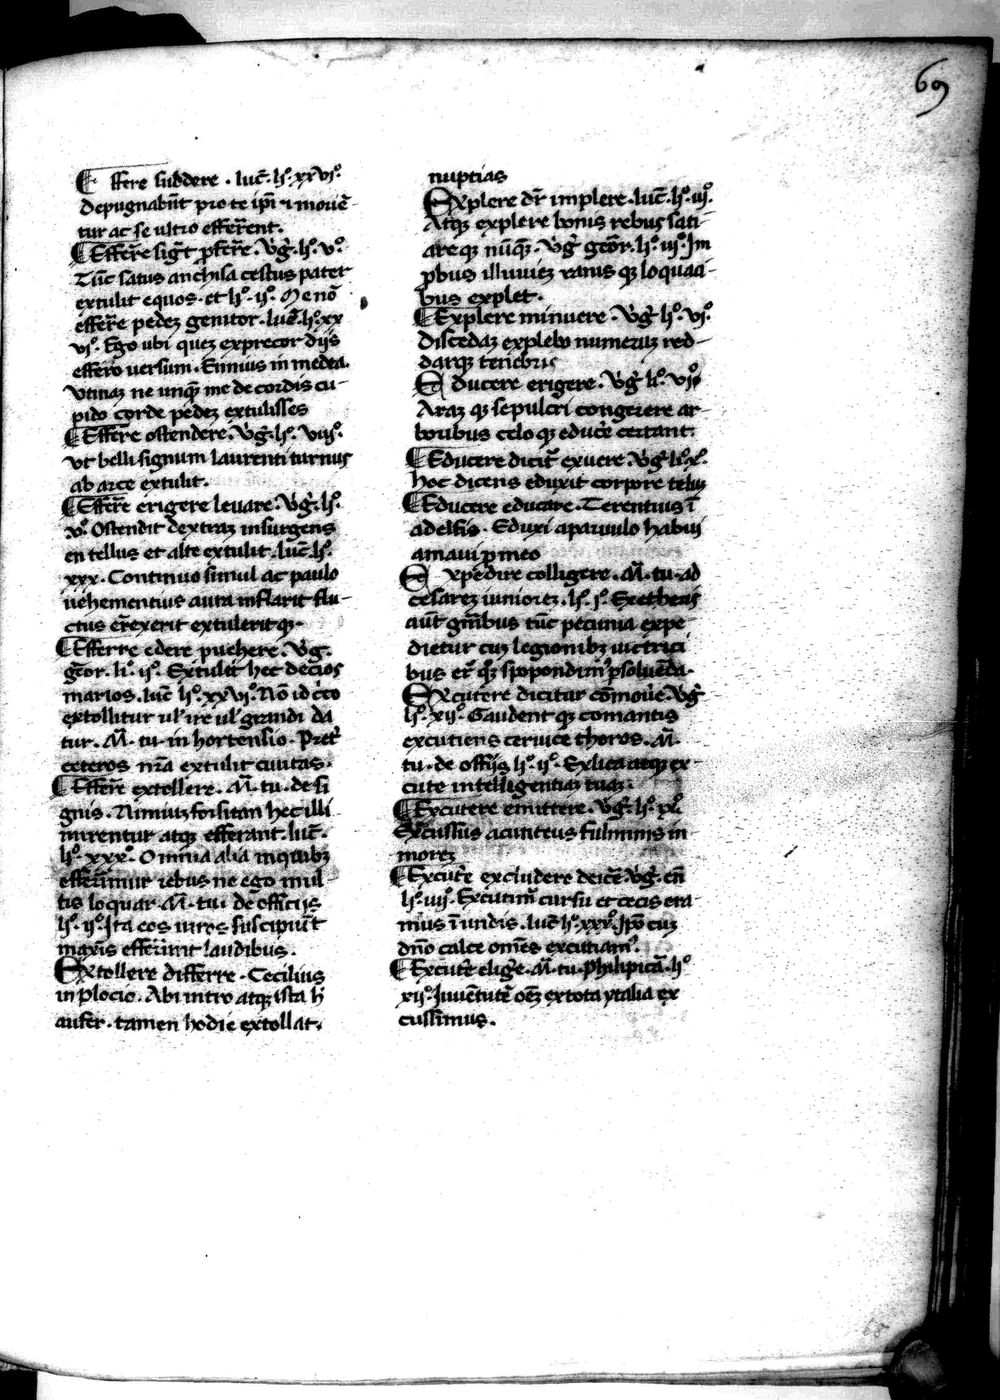 69
Effere suddere . luc̄. lº. xxvıº.
depugnabūt pro te ip̄i ⁊ mouē-
tur ac se ultro efferrent.
Efferr̄e sigt̄ p̄ferr̄e. Vg̊. lº. vº.
Tūc satus anchisa cestus pater
extulit equos . et lº. ijº. Me nō
efferr̄e pedez genitor . luc̄. lº. xx
vjº. Ego ubi quez exprecor dijs
effero uersum . Ennius in medea.
Vtinaz ne unqȝ me de cordis cu-
pido corde pedez extulisses
Efferre ostendere . Vg̊. lº. viijº.
vt belli signum laurenti turnus
ab arce extulit.
Efferr̄e erigere leuare . Vg̊. lº.
vº. Ostendit dextraz insurgens
en tellus et alte extulit . luc̄. lº.
xxx . Continuo simul ac paulo
uehementius aura inflarit flu-
ctus er̄exerit extulerit qȝ.
Efferre edere puehere . Vg̊.
geōr. li. ijº. Extulit hec decios
marios. luc̄ lº. xxvı. Nō id
extollitur ul' ire ul' girandi da
tur. M̄. tu. in hortensio . Pret̄
ceteros nr̄a extulit ciuitas.
Efferr̄e extollere . M̄. tu. de si
gnis . Nimiuz forsitan hec illi
mirentur atqȝ efferant. luc̄.
lº. xxxº. Omnia alia inquibȝ
efferimur rebus ne ego mul-
tis loquar . M̄. tu. de officijs
lº. ijº. Ita eos uiros suscipiūt
maxīs efferūnt laudibus.
Extollere differre . Cecilius
in plocio. Abi intro atqȝ ista h̄
aufer . tamen hodie extollat.
nuptias
Explere dr̄ implere . luc̄. lº. iijº.
Atqȝ explere bonis rebus sati-
are qȝ nūqȝ . Vg̊ geōr. lº. iijº. Im
p̄bus illuuiez ranis qȝ loquaci-
bus explet.
Explere minuere . Vg̊ lº. vjº.
Discedaz explebo numeruz red-
darqȝ tenebris
Educere erigere . Vg̊ li. vjº
Araz qȝ sepulcri congerere ar-
boribus celo qȝ educer̄e certant.
Educere dicit̄ exuere . Vg̊ lº. xº.
hoc dicens eduxit corpore telū
Educere educare . Terentius ī
adelfis . Eduxi a paruulo habui
amaui p̄ meo
Expedire colligere . M̄. tu. ad
cesarez iuniorez . lº. jº. Sextheas
aut̄ gn̄ibus tūc pecunia expe
dietur cuȝ legionibȝ uictrici
bus er̄. qȝ spopondim̄ p̄soluēda.
Excutere dicitur cōmoue̅. Vg̊
lº. xijº. Gaudent qȝ comantis
excutiens ceruice thoros. M̄.
tu. de offiijs lº. ijº. Explica atqȝ ex-
cute intelligentiaz tuaz.
Excutere emittere . Vg̊. lº. xº.
Excussus acunteus fulminis in
morez
Excuter̄e excludere deicer̄e Vg̊. en̄
lº. iijº. Excutim̄ cursu et cecis era-
mus ī undis . luc̄ lº. xxxº. Ipō cuȝ
dn̄o calce om̄es excutiamº.
Excuter̄e elig̊e . M̄. tu. Philipicā. lº
xijº. Iuuētutē oēȝ ex tota ytalia ex
cussimus.